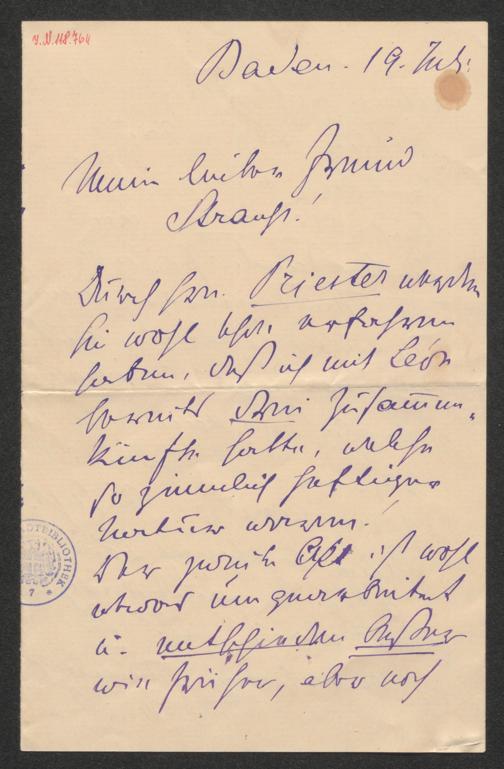 J.N.118.764
Baden. 19. Juli.
Mein lieber Freund
Strauss!
Durch Hrn. Priester werden
Sie wohl schon erfahren
haben, daß ich mit Léon
bereits drei Zusammen-
künfte hatte, welche
so ziemlich heftiger
Natur waren!
Der zweite Akt ist wohl
etwas umgearbeitet
u. entschieden besser
wie früher, aber noch
STADTBIBLIOTHEK